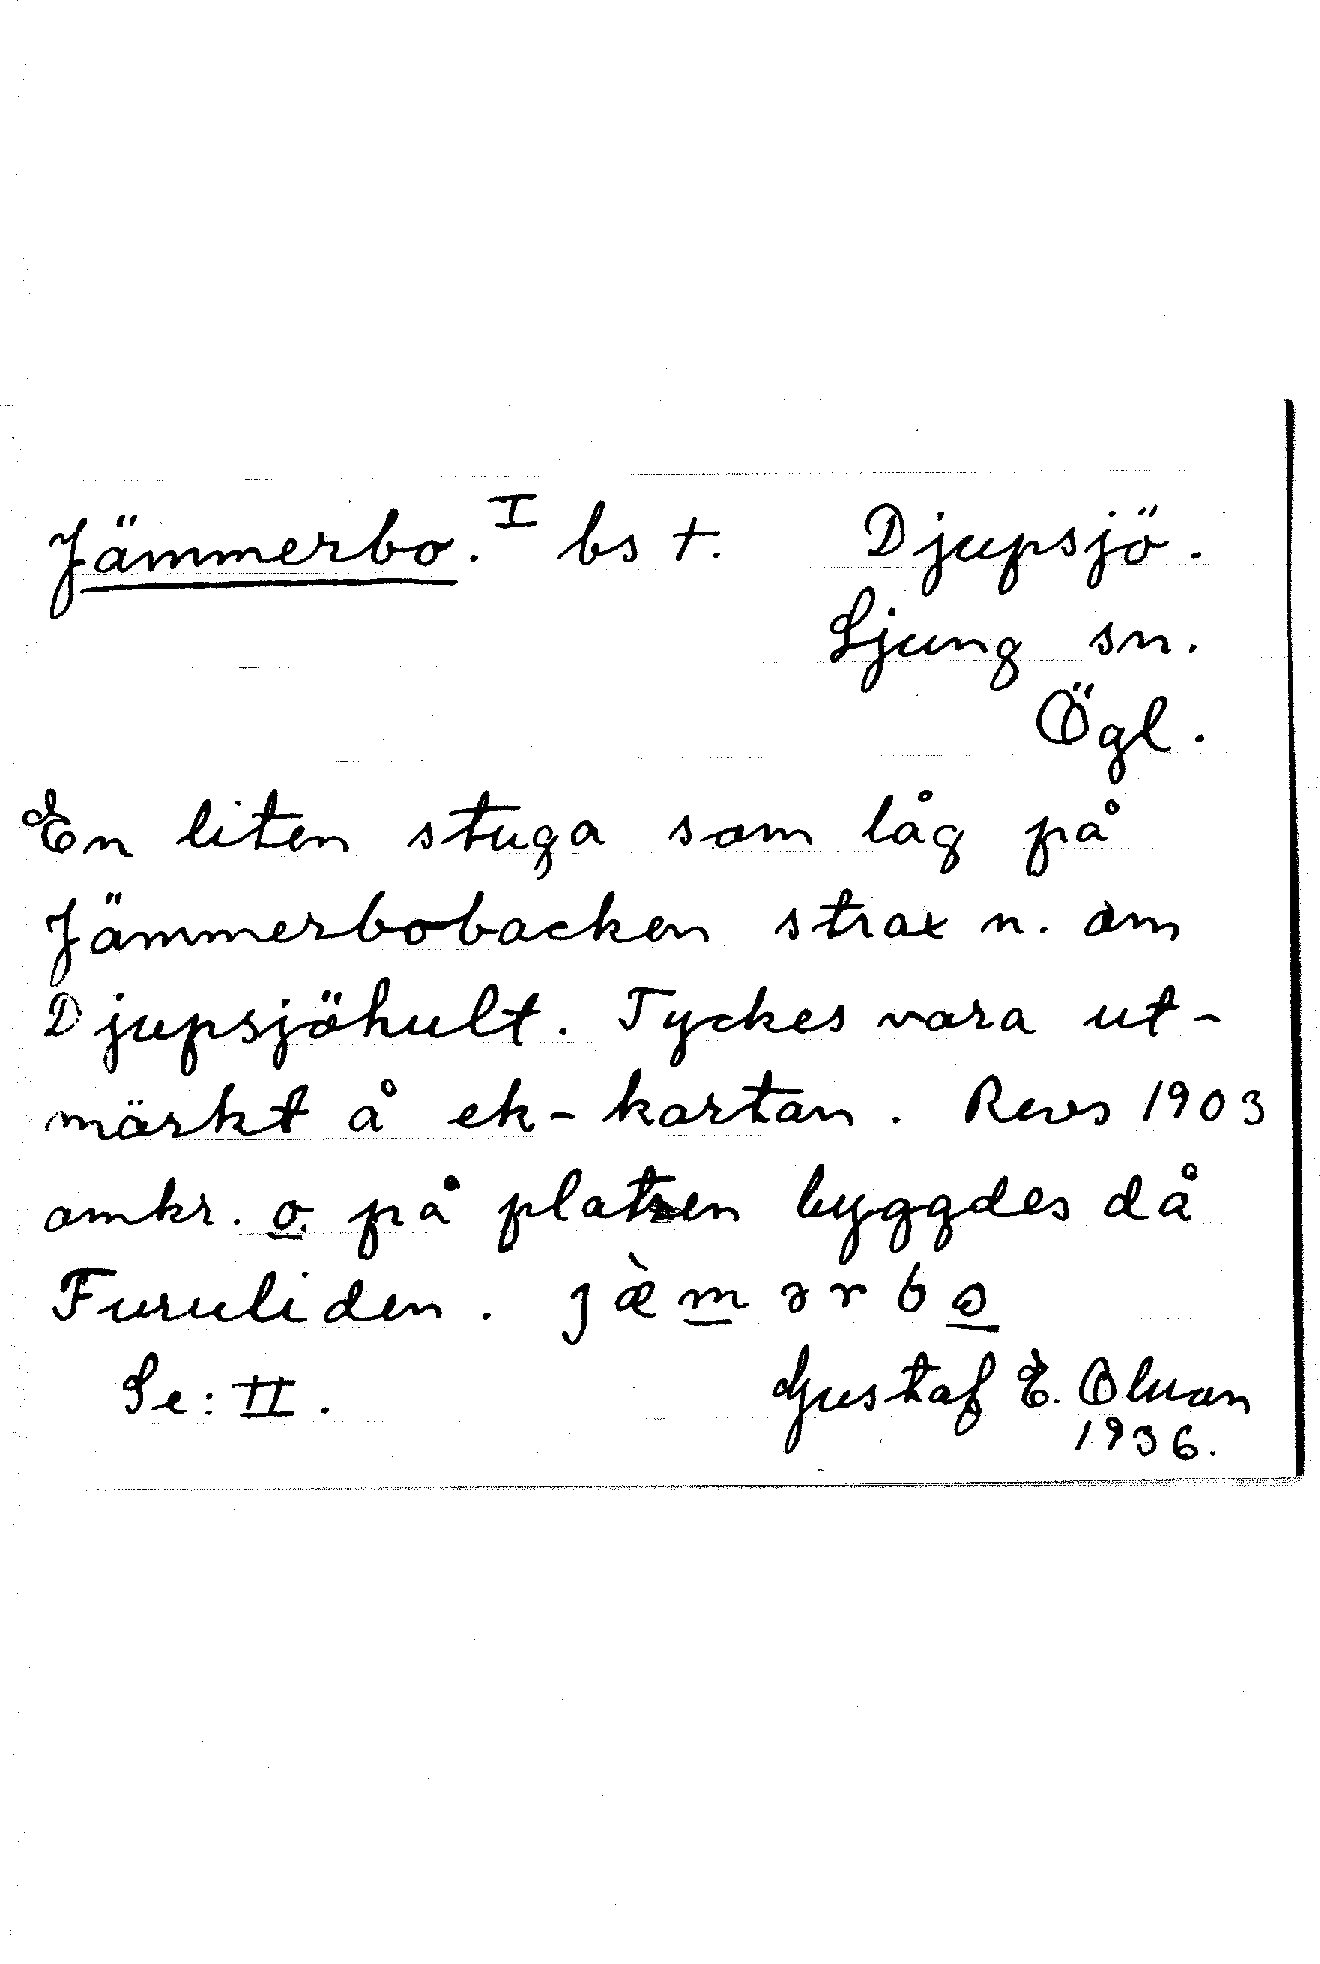 Jämmerbo. I bs +. Djupsjö.
Ljung sn.
Ögl.
En liten stuga som låg på
Jämmerbobacken strax n. om
Djupsjöhult. Tyckes vara ut-
märkt å ek-kartan. Revs 1903
omkr. o. på platsen byggdes då
Furuliden. jæ̀mərbo
Se: II. Gustaf E. Olsson
1936.